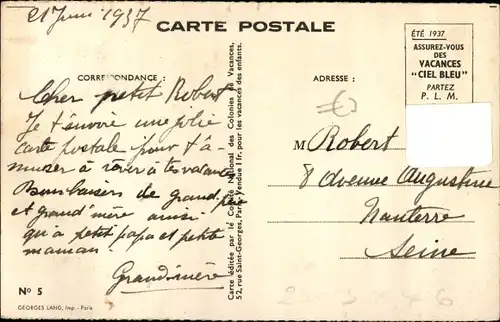 21 Juin 1937
CARTE POSTALE
ÉTÉ 1937
ASSUREZ-VOUS
DES
VACANCES
"CIEL BLEU"
PARTEZ
P. L. M.
CORRESPONDANCE :
Cher petit Robert
Je t'envoie une jolie
carte postale pour t'a-
muser à rêver à tes vacances
Bons baisers de grand-père
et grand'mère ainsi
qu'à petit papa et petite
maman.
Grand-mère
Nº 5
GEORGES LANG, Imp. - Paris
Carte éditée par le Comité National des Colonies de Vacances,
52, rue Saint-Georges, Paris. Vendue 1 fr. pour les vacances des enfants.
ADRESSE :
M Robert
8 Avenue Augustine
Nanterre
Seine